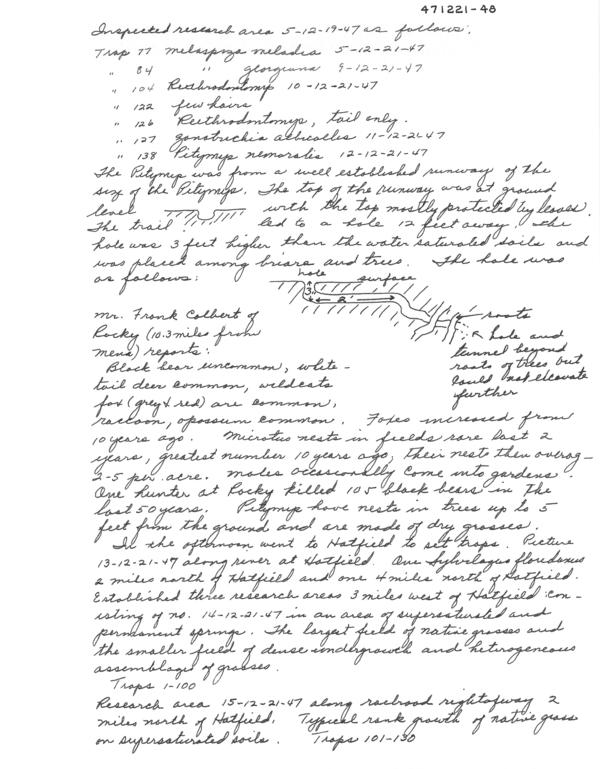 471221-48
Inspected research area 5-12-19-47 as follows:
Trap 77 Melospiza melodia 5-12-21-47
" 84 " georgiana 9-12-21-47
" 104 Reithrodontomys 10-12-21-47
" 122 few hairs
" 126 Reithrodontomys, tail only.
" 127 Zonotrichia albicollis 11-12-21-47
" 138 Pitymys nemoralis 12-12-21-47
The Pitymys was from a well established runway of the
size of the Pitymys. The top of the runway was at ground
level with the top mostly protected by leaves.
The trail led to a hole 12 feet away. The
hole was 3 feet higher than the water saturated soils and
was placed among briars and trees. The hole was
as follows:
hole surface
3" 2'
roots
hole and
tunnel beyond
roots of trees but
could not excavate
further
Mr. Frank Colbert of
Rocky (10.3 miles from
Mena) reports:
Black bear uncommon, white-
tail deer common, wildcats
fox (grey & red) are common,
raccoon, opossum common. Foxes increased from
10 years ago. Microtus nests in fields rare last 2
years, greatest number 10 years ago, their nests then averag-
2-5 per acre. Moles occasionally come into gardens.
One hunter at Rocky killed 105 black bears in the
last 50 years. Pitymys have nests in trees up to 5
feet from the ground and are made of dry grasses.
In the afternoon went to Hatfield to set traps. Picture
13-12-21-47 along river at Hatfield. One Sylvilagus floridanus
2 miles north of Hatfield and one 4 miles north of Hatfield.
Established three research areas 3 miles west of Hatfield con-
isting of no. 14-12-21-47 in an area of supersaturated and
permanent springs. The largest field of native grasses and
the smaller field of dense undergrowth and hetirogeneous
assemblage of grasses.
Traps 1-100
Research area 15-12-21-47 along railroad right of way 2
miles north of Hatfield. Typical rank growth of native grass
on supersaturated soils. Traps 101-130